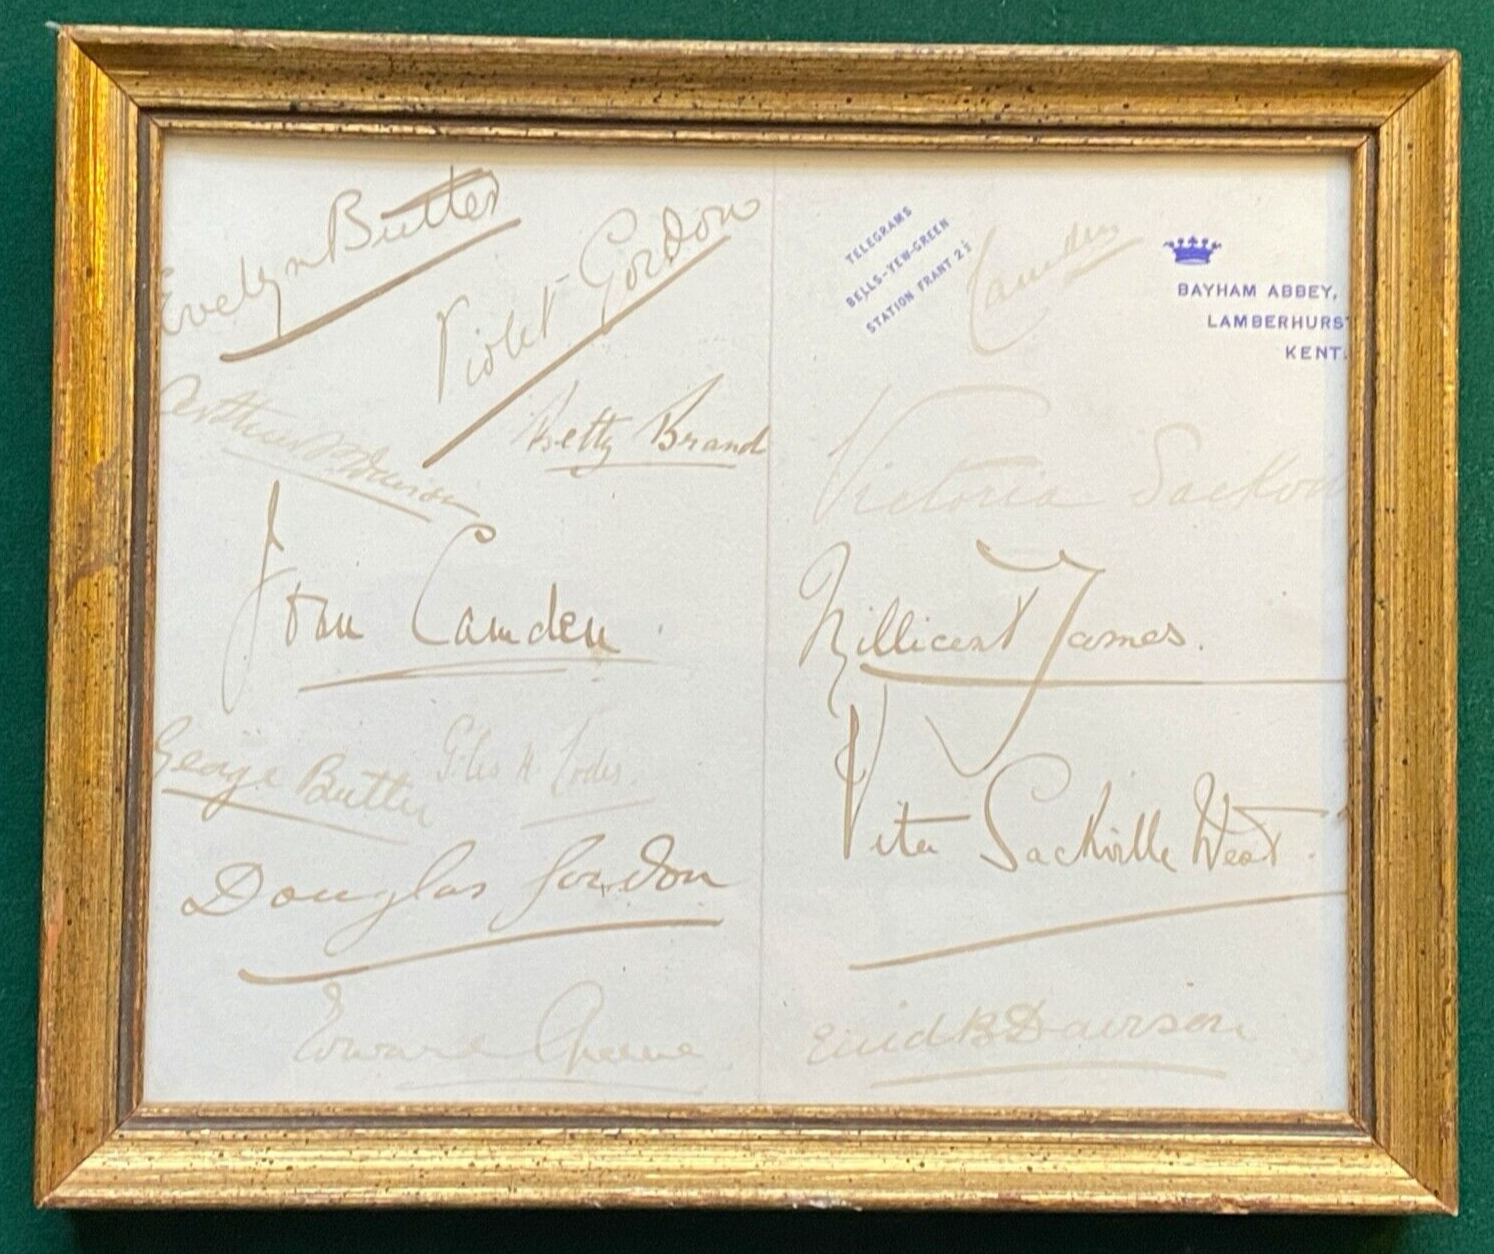 Evelyn Butler
Violet Gordon
Betty Brand
Joan Camden
George Butler
Douglas Gordon
TELEGRAMS
BELLS-YEW-GREEN
STATION FRANT 2½
Camden
BAYHAM ABBEY,
LAMBERHURST
KENT.
Victoria Sackvi
Millicent James.
Vita Sackville West.
Enid B Davison